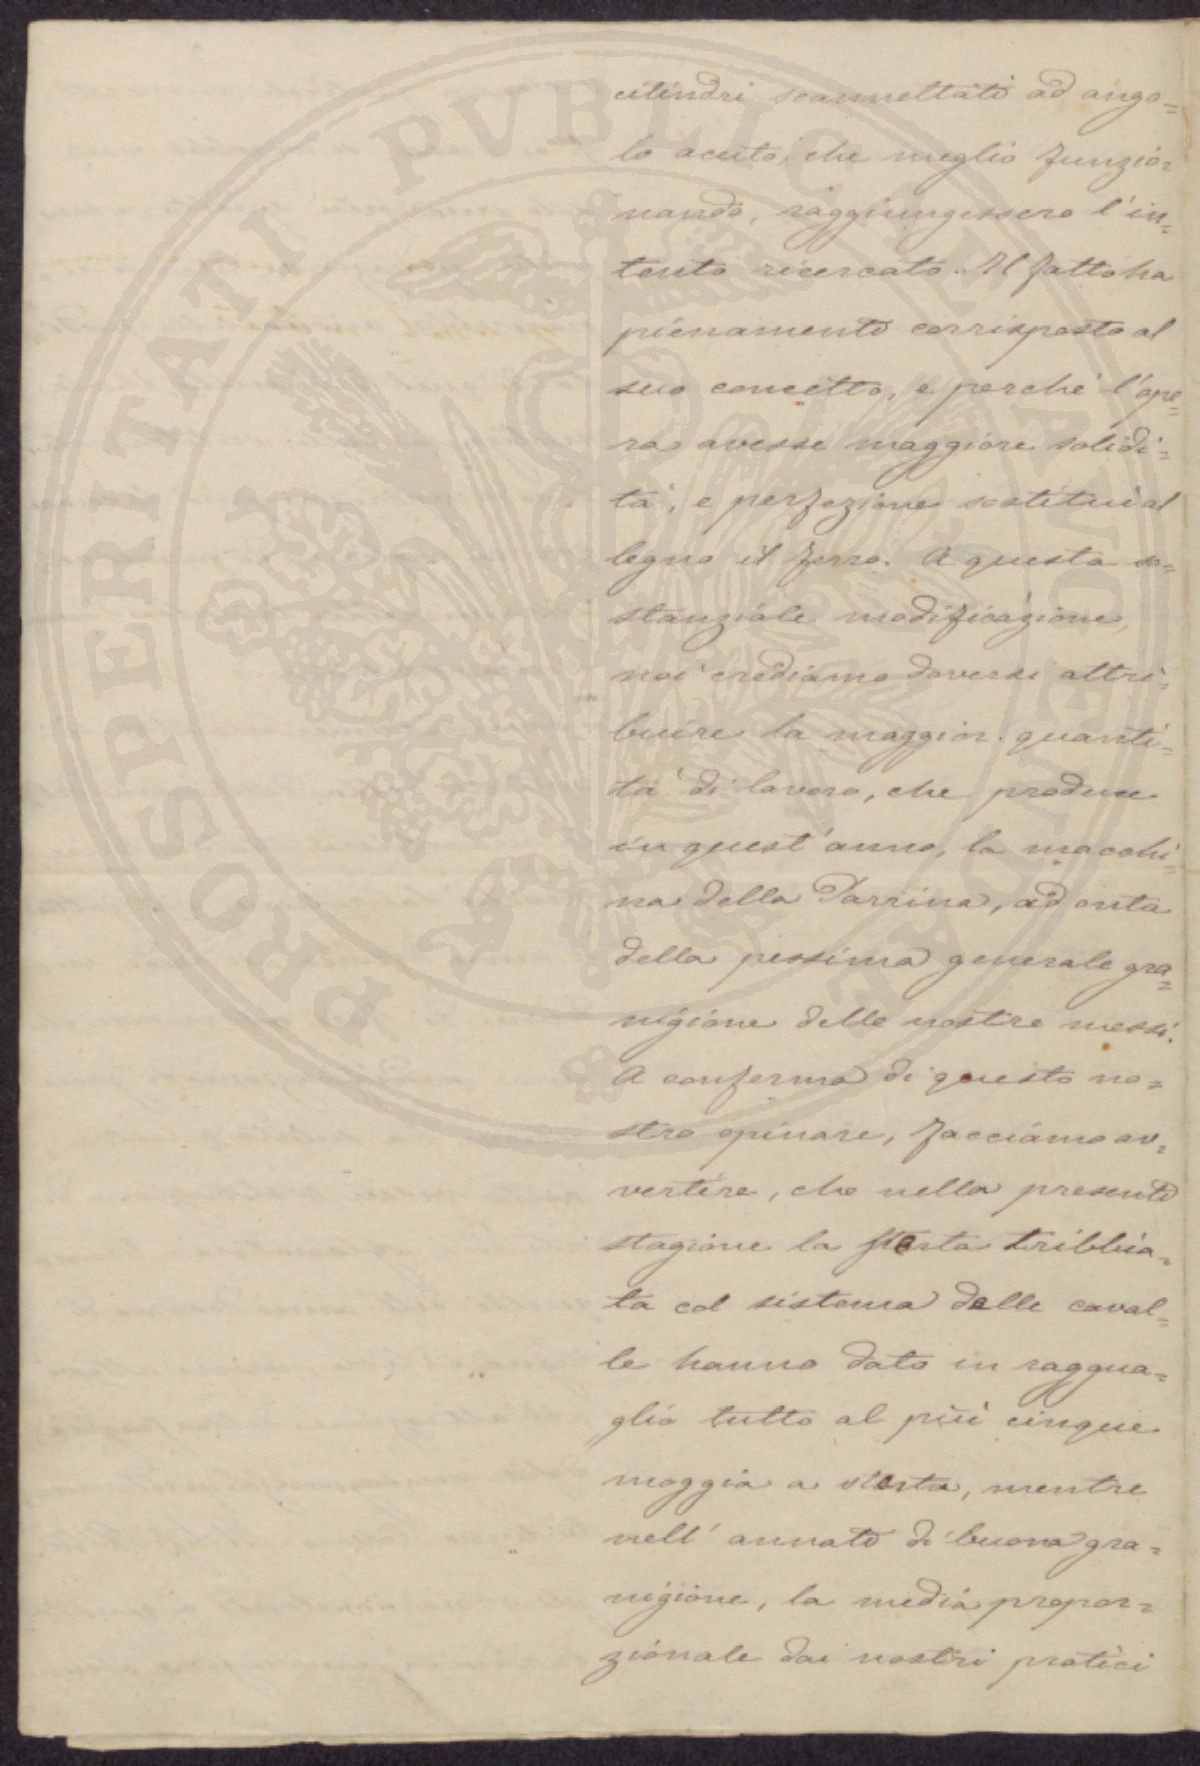 cilindri scannettati ad ango=
lo acuto, che meglio funzio=
nando, raggiungessero l'in=
tento ricercato. Il fatto ha
pienamente corrisposto al
suo concetto, e perchè l'ope=
ra avesse maggiore solidi=
tà, e perfezione sostituì al
legno il ferro. A questa so=
stanziale modificazione,
noi crediamo doversi attri=
buire la maggior quanti=
tà di lavoro, che produce
in quest'anno, la macchi=
na della Parrina, ad onta
della pessima generale gra=
nigione delle nostre messi.
A conferma di questo no=
stro opinare, facciamo av=
vertire, che nella presente
stagione la sterta tribbia=
ta col sistema delle caval=
le hanno dato in raggua=
glio tutto al più cinque
moggia a sterta, mentre
nell'annate di buona gra=
nigione, la media propor=
zionale dai nostri pratici
PROSPERITATI PVBLICAE